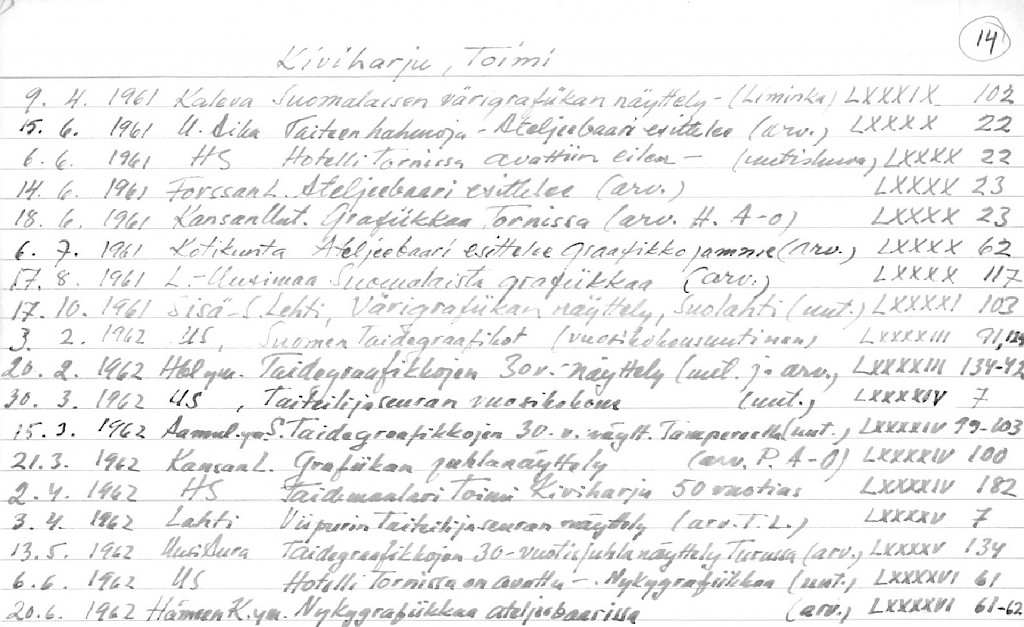 14
Kiviharju, Toimi
9. 4. 1961 Kaleva Suomalaisen värigrafiikan näyttely - (Liminka) LXXXIX 102
15. 6. 1961 U. Aika Taiteen hahmoja - Ateljeebaari esittelee (arv.) LXXXX 22
6. 6. 1961 HS Hotelli Tornissa avattiin eilen - (uutiskuva) LXXXX 22
14. 6. 1961 Forssan L. Ateljeebaari esittelee (arv.) LXXXX 23
18. 6. 1961 Kansan Uut. Grafiikkaa Tornissa (arv. H. A-o) LXXXX 23
6. 7. 1961 Kotikunta Ateljeebaari esittelee graafikkojamme (arv.) LXXXX 62
17. 8. 1961 L.-Uusimaa Suomalaista grafiikkaa (arv.) LXXXX 117
17. 10. 1961 Sisä-S. Lehti, Värigrafiikan näyttely, Suolahti (uut.) LXXXXI 103
3. 2. 1962 US, Suomen Taidegraafikot (vuosikokousuutinen) LXXXXIII 91,
20. 2. 1962 Hbl ym. Taidegraafikkojen 30v.-näyttely (uut. ja arv.) LXXXXIII 134-42
30. 3. 1962 US, Taiteilijaseuran vuosikokous (uut.) LXXXXIV 7
15. 3. 1962 Aamul. ym. S. Taidegraafikkojen 30-v. näytt. Tampereella (uut.) LXXXXIV 99-103
21. 3. 1962 Kansan L. Grafiikan juhlanäyttely (arv. P. A-O) LXXXXIV 100
2. 4. 1962 HS Taidemaalari Toimi Kiviharju 50 vuotias LXXXXIV 182
3. 4. 1962 Lahti Viipurin Taiteilijaseuran näyttely (arv. T. L.) LXXXXV 7
13. 5. 1962 Uusi Aura Taidegraafikkojen 30-vuotisjuhlanäyttely Turussa (arv.) LXXXXV 134
6. 6. 1962 US Hotelli Tornissa on avattu -. Nykygrafiikkaa (uut.) LXXXXVI 61
20. 6. 1962 Hämeen K. ym. Nykygrafiikkaa ateljeebaarissa (arv.) LXXXXVI 61-62